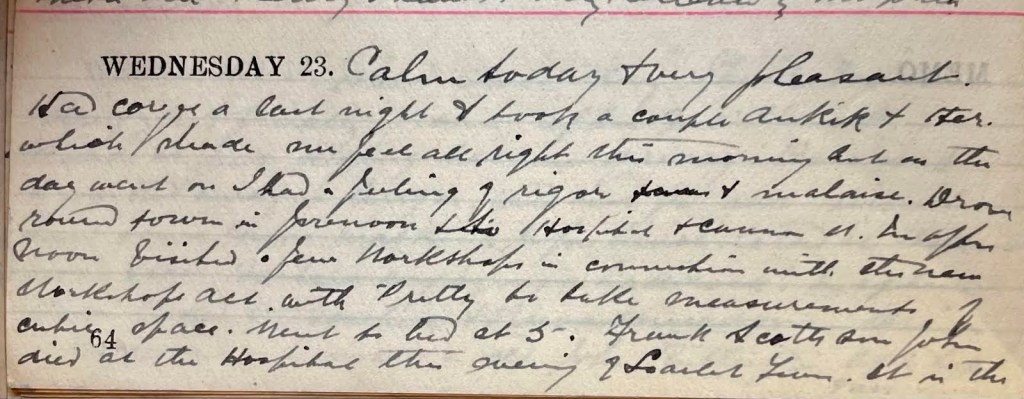 WEDNESDAY 23. Calm today & very pleasant.
Had coryza last night & took a couple & Her.
which made me feel all right this morning but as the
day went on I had a feeling of rigor & malaise. Drove
round town in forenoon Hospital & Cannon St. In after
noon Visited a few Workshops in connection with the new
Workshops Act with Pretty to take measurements of
cubic space. Went to bed at 5. Frank Scotts son John
64
died at the Hospital this evening of Scarlet Fever. It is the